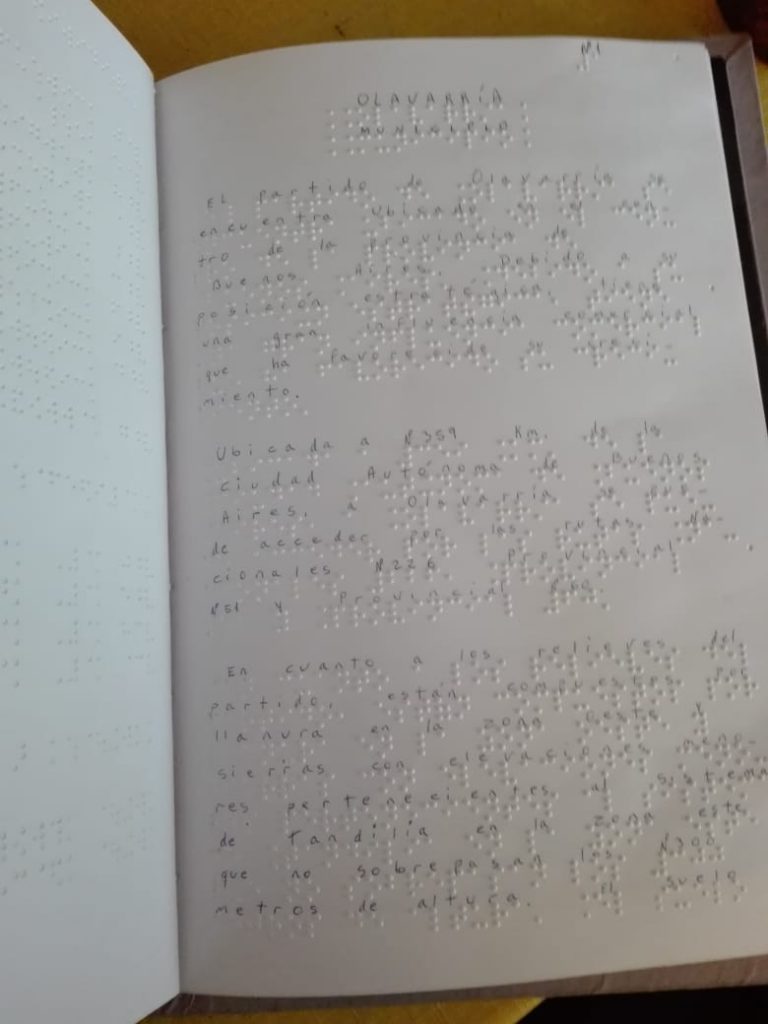 N1
OLAVARRÍA
MUNICIPIO
El partido de Olavarría se
encuentra ubicado en el cen-
tro de la provincia de
Buenos Aires. Debido a su
posición estratégica, tiene
una gran influencia comercial
que ha favorecido su creci-
miento.
Ubicada a N359 Km. de la
ciudad Autónoma de Buenos
Aires, a Olavarría se pue-
de acceder por las rutas Na-
cionales N226, Provincial
N51 y Provincial N60.
En cuanto a los relieves del
partido, están compuestos por
llanura en la zona oeste y
sierras con elevaciones meno-
res pertenecientes al sustema
de Tandilia en la zona este
que no sobrepasan los N300
metros de altura. El suelo